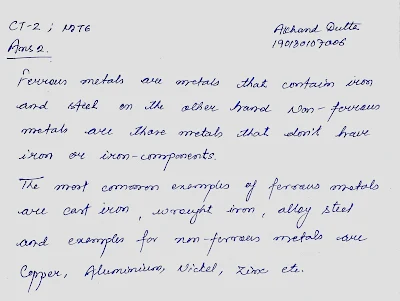 CT-2 ; MTE Akhand Dutta
190130107006
Ans 2.
Ferrous metals are metals that contain iron
and steel on the other hand Non-ferrous
metals are those metals that don't have
iron or iron-components.
The most common examples of ferrous metals
are cast iron, wrought iron, alloy steel
and examples for non-ferrous metals are
Copper, Aluminium, Nickel, Zinc etc.